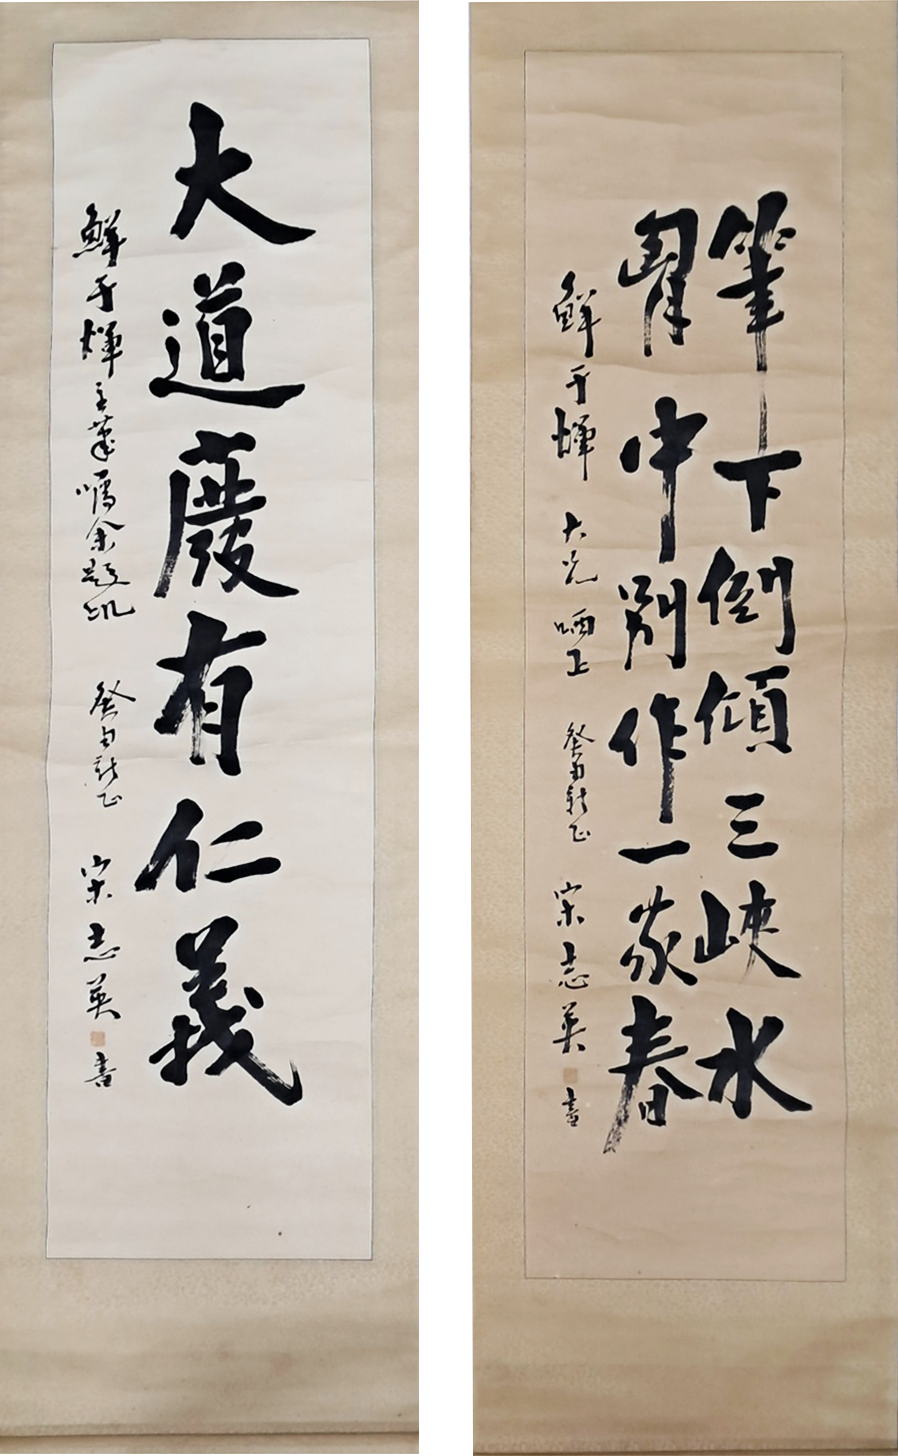 筆下倒傾三峽水
胷中別作一家春
鮮于煇 大兄 哂正 癸酉新正 宋志英 書
大道廢有仁義
鮮于煇主筆囑余題此 癸酉新正 宋志英 書